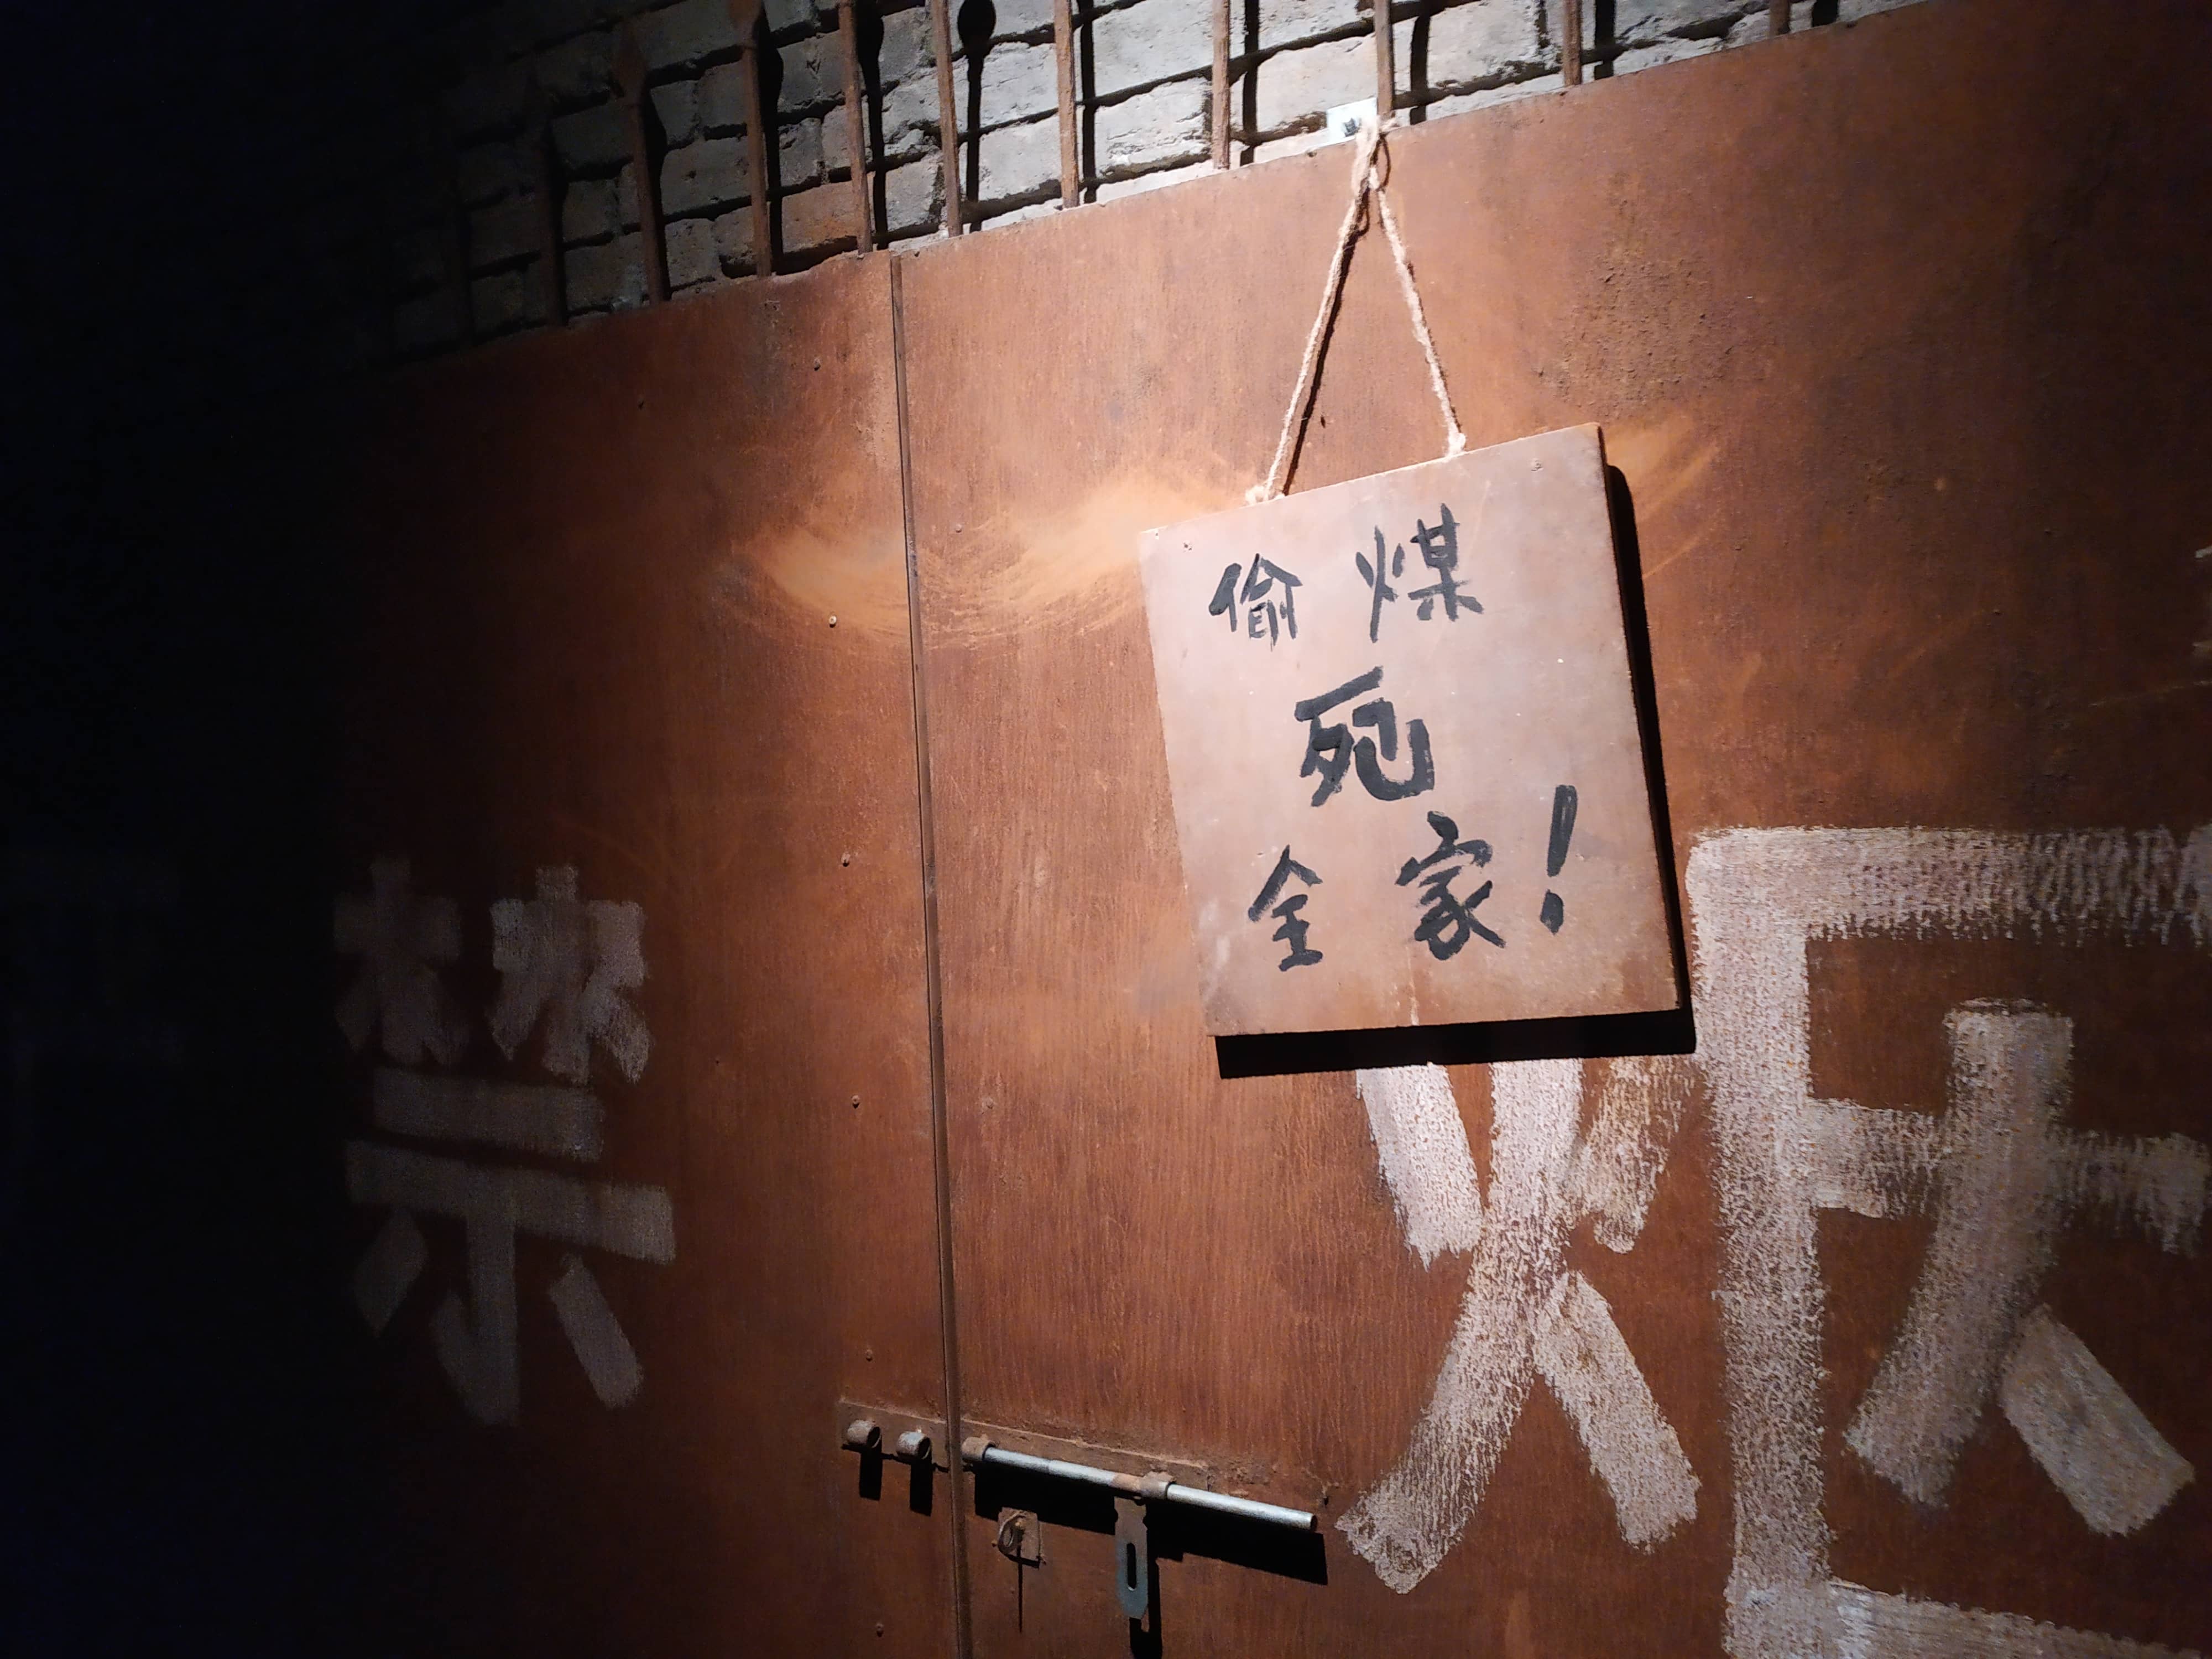 偷煤
死
全家!
禁烟